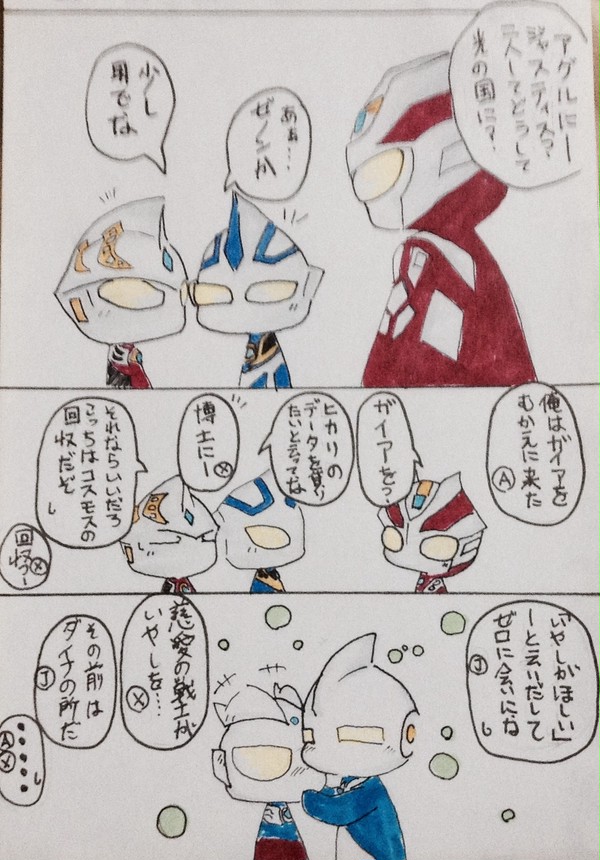 アグルにー
ジャスティス？
二人してどうして
光の国に？
あぁ…
ゼノンか
少し
用でな
俺はガイアを
むかえに来た
A
ガイアを？
ヒカリの
データを貰い
たいと云ってな
博士にー
X
それならいいだろ
こっちはコスモスの
回収だぞ
J
回収っ…
X
「いやしがほしい」
ーと云いだして
ゼロに会いにな
J
慈愛の戦士が
いやしを…
X
その前は
ダイナの所だ
J
……
A X